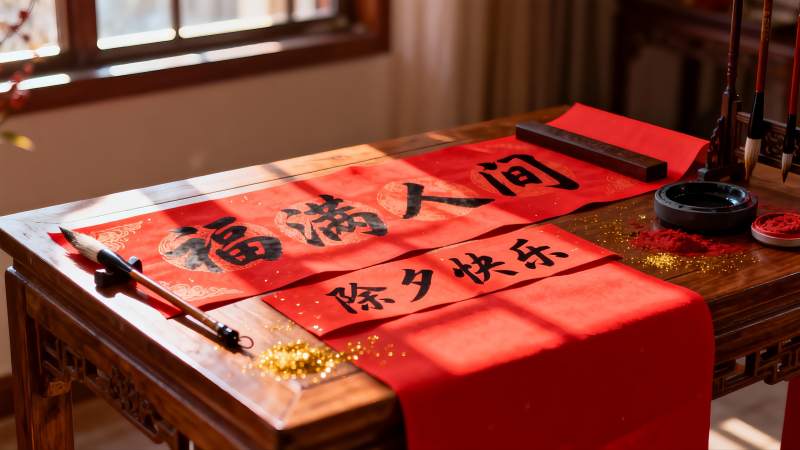 福满人间
除夕快乐